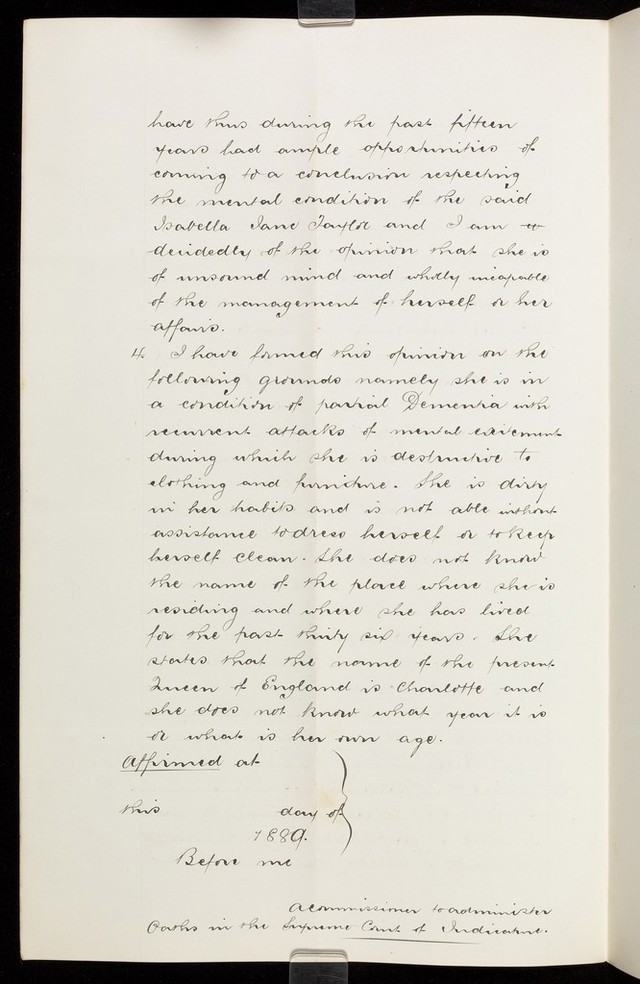 have thus during the past fifteen
years had ample opportunities of
coming to a conclusion respecting
the mental condition of the said
Isabella Jane Taylor and I am
decidedly of the opinion that she is
of unsound mind and wholly incapable
of the management of herself or her
affairs.
4. I have formed this opinion on the
following grounds namely she is in
a condition of partial Dementia with
recurrent attacks of mental excitement
during which she is destructive to
clothing and furniture. She is dirty
in her habits and is not able without
assistance to dress herself or to keep
herself clean. She does not know
the name of the place where she is
residing and where she has lived
for the past thirty six years. She
states that the name of the present
Queen of England is Charlotte and
she does not know what year it is
or what is her own age.
Affirmed at
this day of
1889.
Before me
A Commissioner to administer
Oaths in the Supreme Court of Judicature.